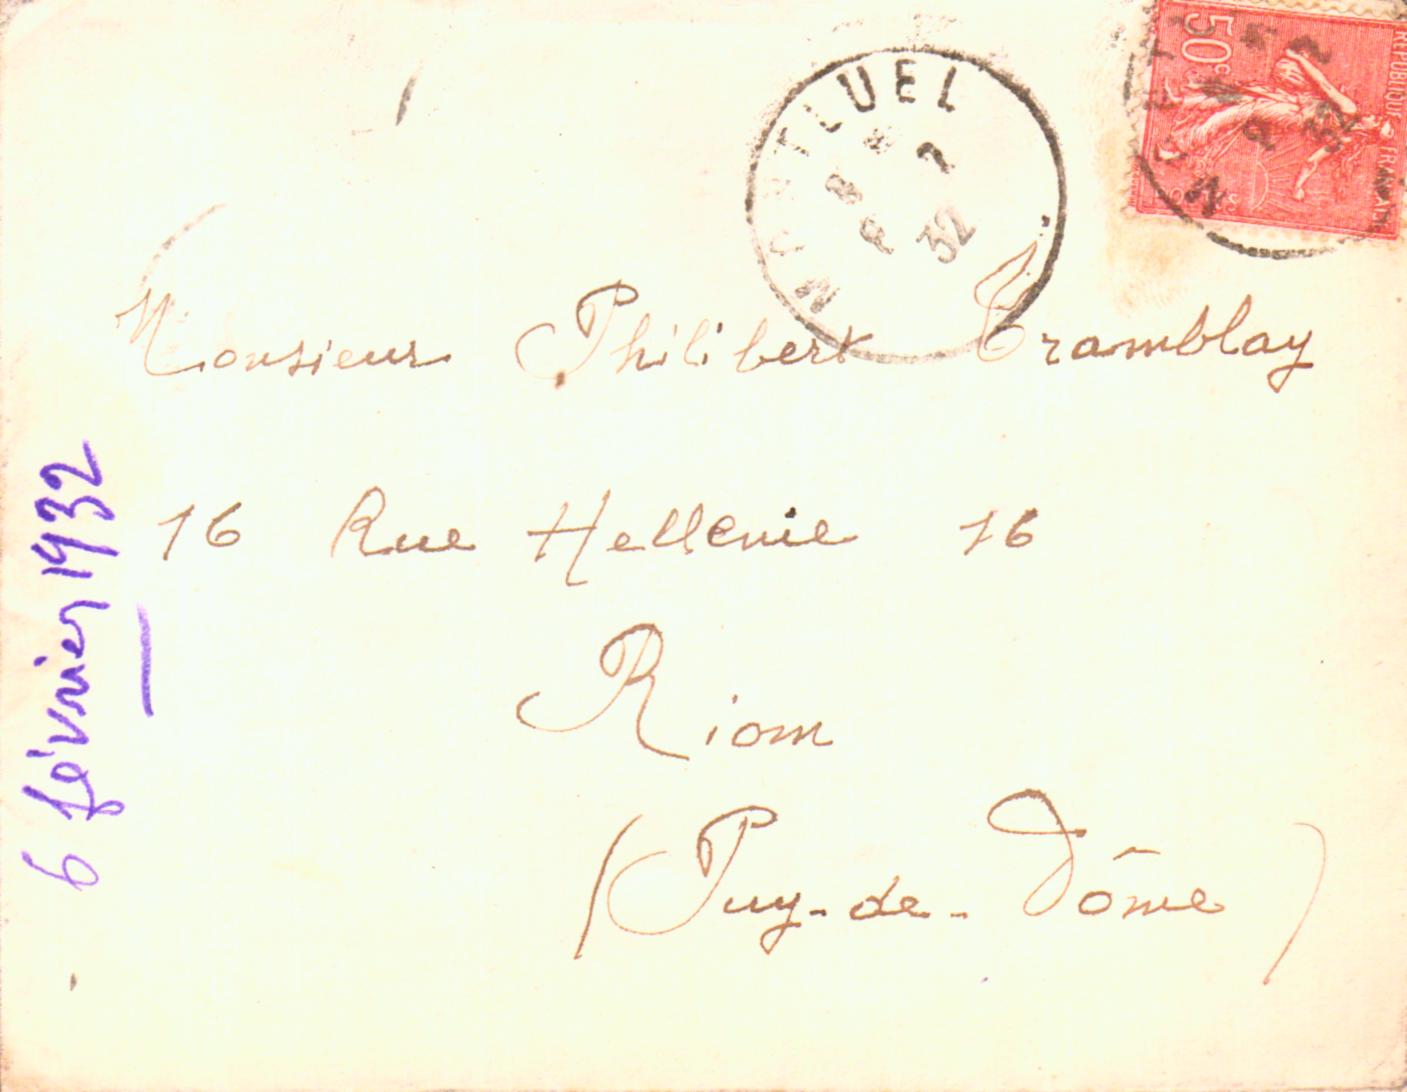 50c
REPUBLIQUE FRANÇAISE
MONTLUEL
32
Monsieur Philibert Tramblay
16 Rue Hellenie 16
Riom
(Puy-de-Dôme)
6 février 1932